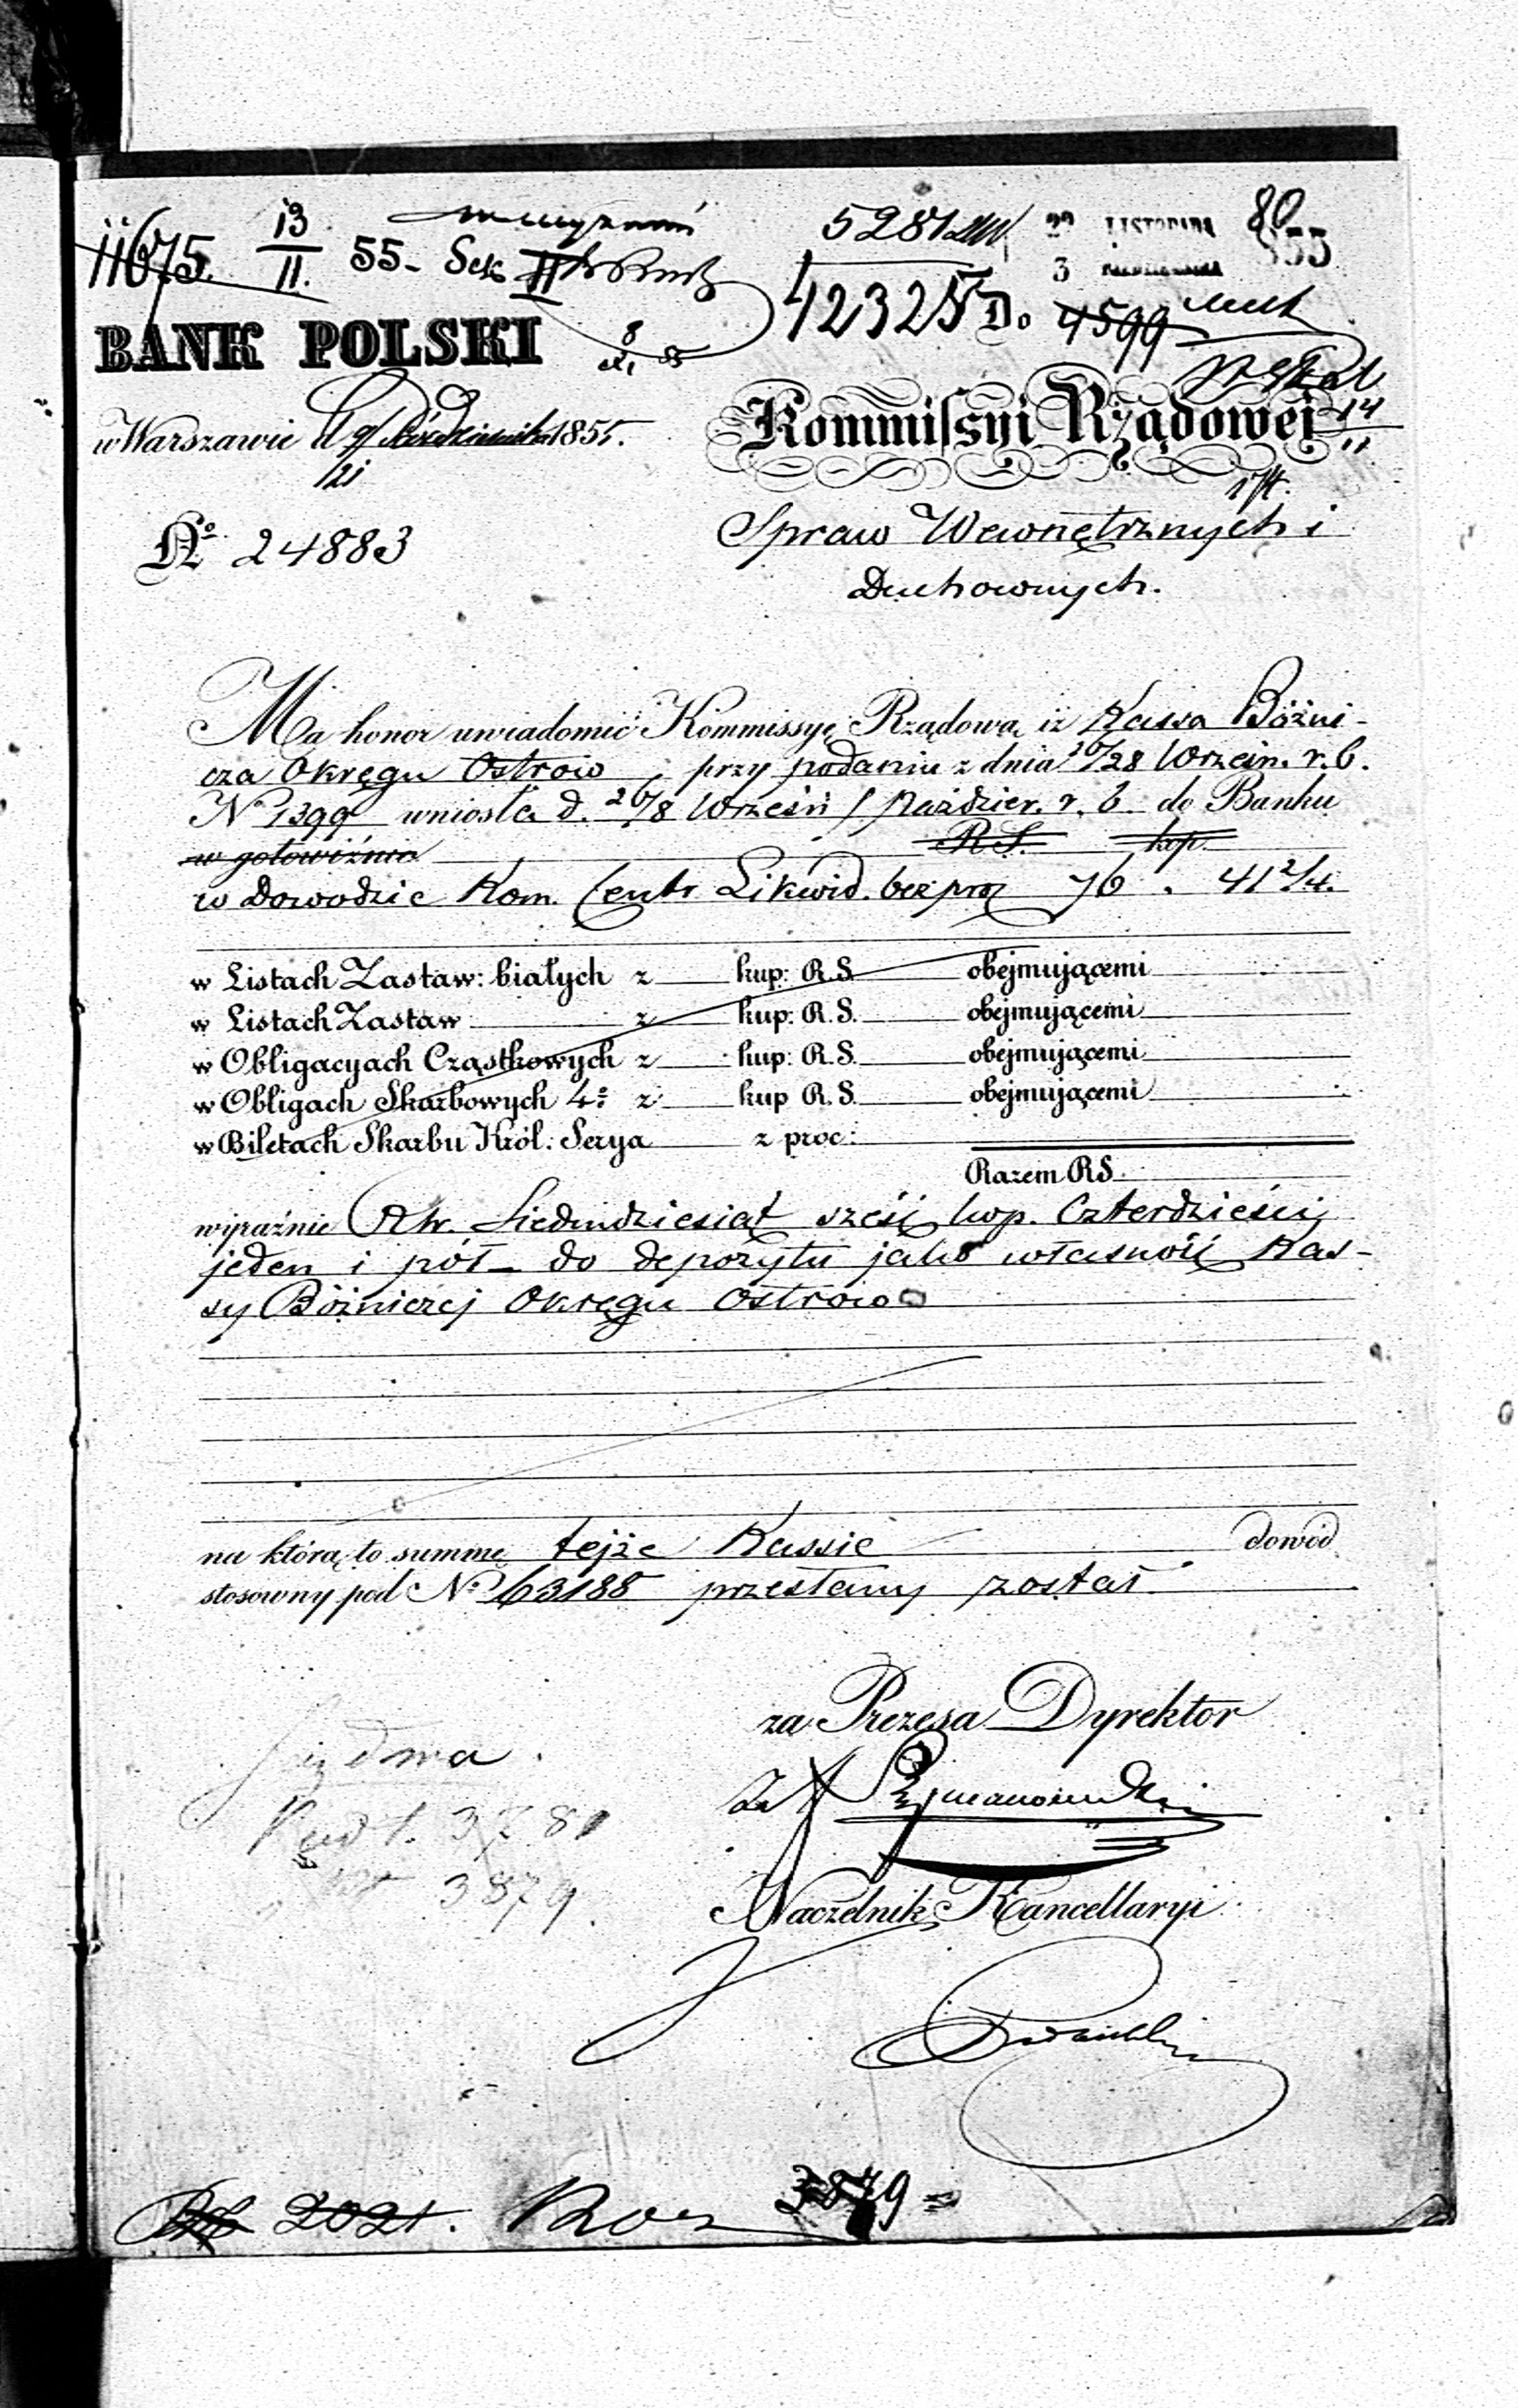 11675. 13/11. 55 - Sek II
5287 22 LISTOPADA 80
3 PAŹDZIERNIKA 1855
42325 Do 4599
BANK POLSKI 8
w Warszawie d 9/21 Października 1855.
Kommissyi Rządowej 14/11
No 24883
Spraw Wewnętrznych i
Duchownych.
Ma honor uwiadomić Kommissyę Rządową iż Kassa Bóżni-
cza Okręgu Ostrów, przy podaniu z dnia 16/28 Wrześn. r. b.
No 1399 wniosła d. 26/8 Wrześń / Paździer. r. b. do Banku
w gotowiźnie RS. kop.
w Dowodzie Kom. Centr. Likwid. bez proz 76. 41 2/4.
w Listach Zastaw: białych z kup: R.S. obejmującemi
w Listach Zastaw z kup: R.S. obejmującemi
w Obligacyach Cząstkowych z kup: R.S. obejmującemi
w Obligach Skarbowych 4: z kup R.S. obejmującemi
w Biletach Skarbu Król: Serya z proc:
Razem RS.
wyraźnie Rsr. Siedmdziesiąt sześć kop. Czterdzieści
jeden i pół - do depozytu jako własność Kas-
sy Bóżniczej Okręgu Ostrów
na którą to summę tejże Kassie dowód
stosowny pod No 63188 przesłany został.
za Prezesa Dyrektor
3781
3879.
Naczelnik Kancellaryi
2021. 3879